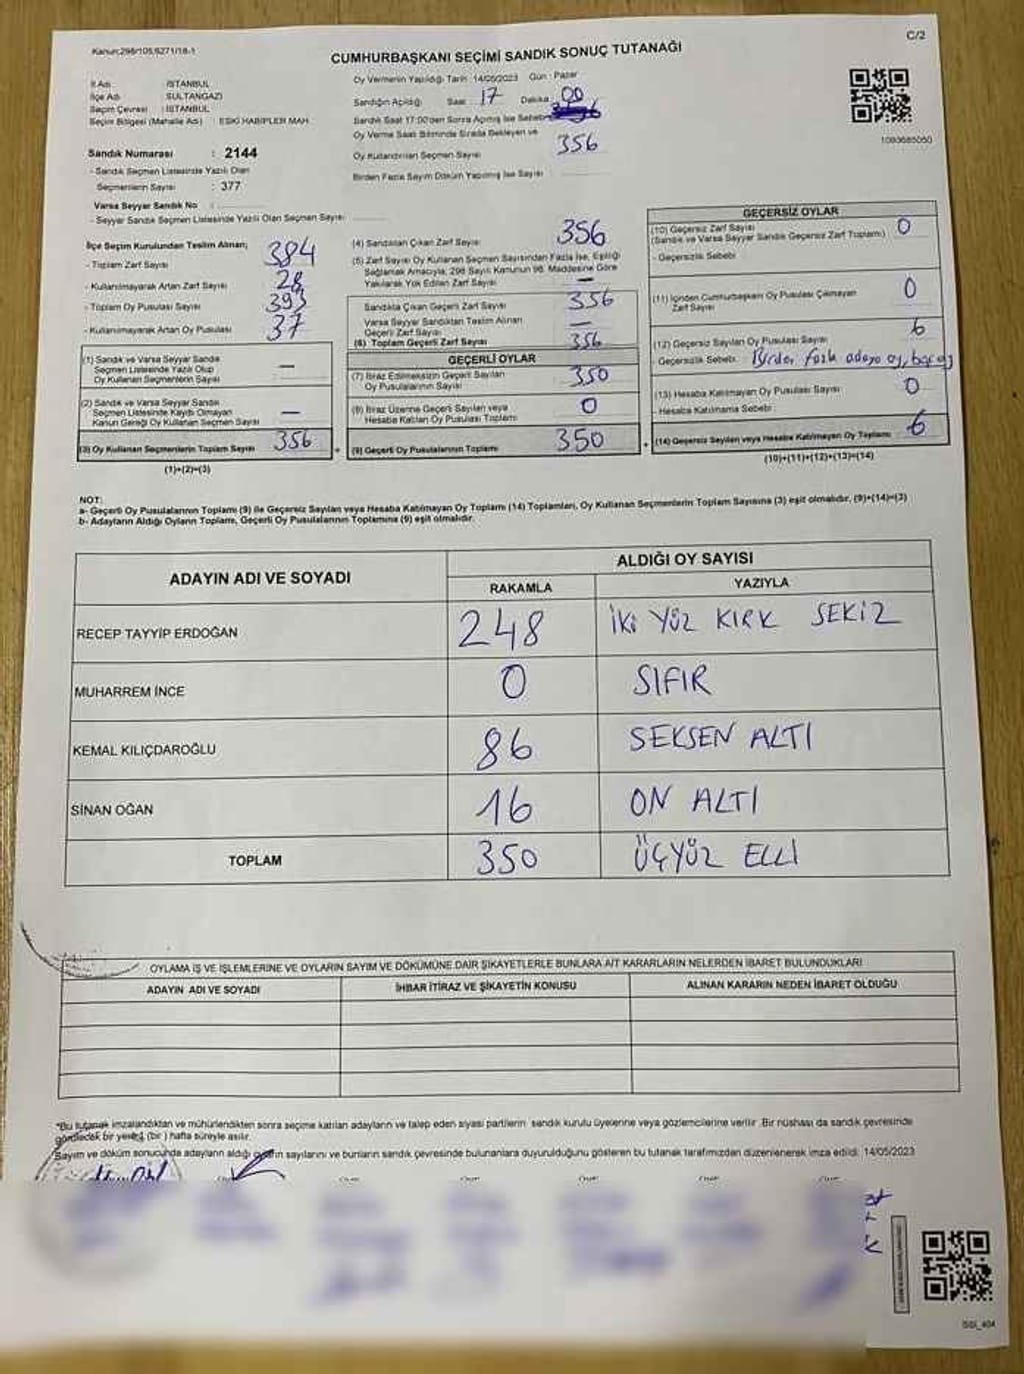 Kanun:298/105,6271/18-1
C/2
CUMHURBAŞKANI SEÇİMİ SANDIK SONUÇ TUTANAĞI
İl Adı : İSTANBUL
İlçe Adı : SULTANGAZİ
Seçim Çevresi : İSTANBUL
Seçim Bölgesi (Mahalle Adı) : ESKİ HABİPLER MAH.
Sandık Numarası : 2144
- Sandık Seçmen Listesinde Yazılı Olan
Seçmenlerin Sayısı : 377
Varsa Seyyar Sandık No :
- Seyyar Sandık Seçmen Listesinde Yazılı Olan Seçmen Sayısı
Oy Vermenin Yapıldığı Tarih : 14/05/2023 Gün : Pazar
Sandığın Açıldığı Saat : 17 Dakika : 00
Sandık Saat 17:00'den Sonra Açılmış İse Sebebi
Oy Verme Saati Bitiminde Sırada Bekleyen ve
Oy Kullandırılan Seçmen Sayısı 356
Birden Fazla Sayım Döküm Yapılmış İse Sayısı :
1093685050
İlçe Seçim Kurulundan Teslim Alınan;
- Toplam Zarf Sayısı 384
- Kullanılmayarak Artan Zarf Sayısı 28
- Toplam Oy Pusulası Sayısı 393
- Kullanılmayarak Artan Oy Pusulası 37
(1) Sandık ve Varsa Seyyar Sandık
Seçmen Listesinde Yazılı Olup
Oy Kullanan Seçmenlerin Sayısı —
(2) Sandık ve Varsa Seyyar Sandık
Seçmen Listesinde Kaydı Olmayan
Kanun Gereği Oy Kullanan Seçmen Sayısı —
(3) Oy Kullanan Seçmenlerin Toplam Sayısı 356
(1)+(2)=(3)
(4) Sandıktan Çıkan Zarf Sayısı 356
(5) Zarf Sayısı Oy Kullanan Seçmen Sayısından Fazla İse, Eşitliği
Sağlamak Amacıyla, 298 Sayılı Kanunun 98. Maddesine Göre
Yakılarak Yok Edilen Zarf Sayısı —
Sandıkta Çıkan Geçerli Zarf Sayısı 356
Varsa Seyyar Sandıktan Teslim Alınan
Geçerli Zarf Sayısı —
(6) Toplam Geçerli Zarf Sayısı 356
GEÇERLİ OYLAR
(7) İtiraz Edilmeksizin Geçerli Sayılan
Oy Pusulalarının Sayısı 350
(8) İtiraz Üzerine Geçerli Sayılan veya
Hesaba Katılan Oy Pusulası Toplamı 0
(9) Geçerli Oy Pusulalarının Toplamı 350
GEÇERSİZ OYLAR
(10) Geçersiz Zarf Sayısı 0
(Sandık ve Varsa Seyyar Sandık Geçersiz Zarf Toplamı)
- Geçersizlik Sebebi
(11) İçinden Cumhurbaşkanı Oy Pusulası Çıkmayan
Zarf Sayısı 0
(12) Geçersiz Sayılan Oy Pusulası Sayısı 6
- Geçersizlik Sebebi : Birden fazla adaya oy
(13) Hesaba Katılmayan Oy Pusulası Sayısı 0
- Hesaba Katılmama Sebebi :
(14) Geçersiz Sayılan veya Hesaba Katılmayan Oy Toplamı 6
(10)+(11)+(12)+(13)=(14)
NOT:
a- Geçerli Oy Pusulalarının Toplamı (9) ile Geçersiz Sayılan veya Hesaba Katılmayan Oy Toplamı (14) Toplamları, Oy Kullanan Seçmenlerin Toplam Sayısına (3) eşit olmalıdır. (9)+(14)=(3)
b- Adayların Aldığı Oyların Toplamı, Geçerli Oy Pusulalarının Toplamına (9) eşit olmalıdır.
ADAYIN ADI VE SOYADI
ALDIĞI OY SAYISI
RAKAMLA YAZIYLA
RECEP TAYYİP ERDOĞAN 248 İKİ YÜZ KIRK SEKİZ
MUHARREM İNCE 0 SIFIR
KEMAL KILIÇDAROĞLU 86 SEKSEN ALTI
SİNAN OĞAN 16 ON ALTI
TOPLAM 350 ÜÇYÜZ ELLİ
OYLAMA İŞ VE İŞLEMLERİNE VE OYLARIN SAYIM VE DÖKÜMÜNE DAİR ŞİKAYETLERLE BUNLARA AİT KARARLARIN NELERDEN İBARET BULUNDUKLARI
ADAYIN ADI VE SOYADI İHBAR İTİRAZ VE ŞİKAYETİN KONUSU ALINAN KARARIN NEDEN İBARET OLDUĞU
*Bu tutanak imzalandıktan ve mühürlendikten sonra seçime katılan adayların ve talep eden siyasi partilerin sandık kurulu üyelerine veya gözlemcilerine verilir. Bir nüshası da sandık çevresinde
görülecek bir yere (bir) hafta süreyle asılır.
Sayım ve döküm sonucunda adayların aldığı oyların sayılarını ve bunların sandık çevresinde bulunanlara duyurulduğunu gösteren bu tutanak tarafımızdan düzenlenerek imza edildi. 14/05/2023